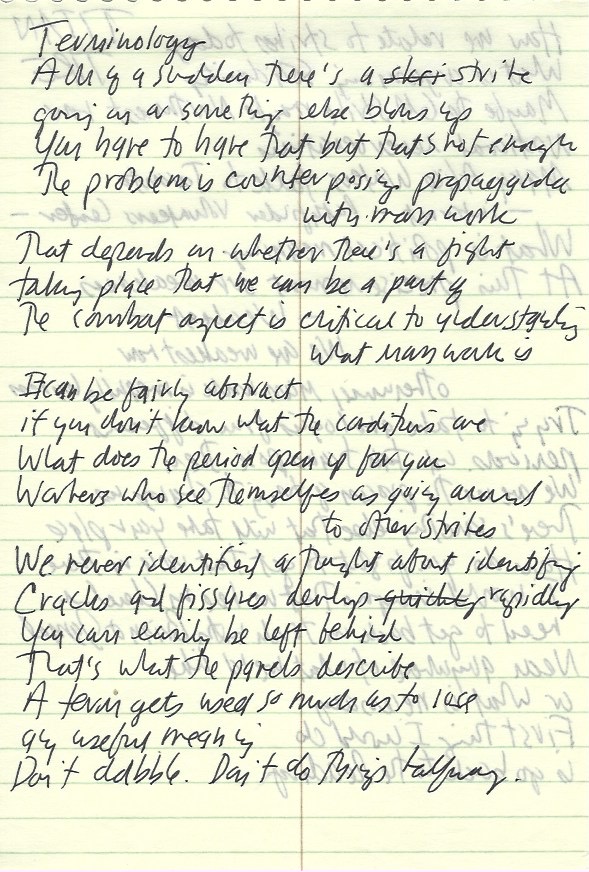 Terminology
All of a sudden there's a skri strike
going on or something else blows up
You have to have that but that's not enough
The problem is counterposing propaganda
with mass work
That depends on whether there's a fight
taking place that we can be a part of
The combat aspect is critical to understanding
what mass work is
It can be fairly abstract
if you don't know what the conditions are
What does the period open up for you
Workers who see themselves as going around
to other strikes
We never identified or thought about identifying
Cracks and fissures develop quickly rapidly
You can easily be left behind
That's what the panels describe
A term gets used so much as to lose
any useful meaning
Don't dabble. Don't do things halfway.